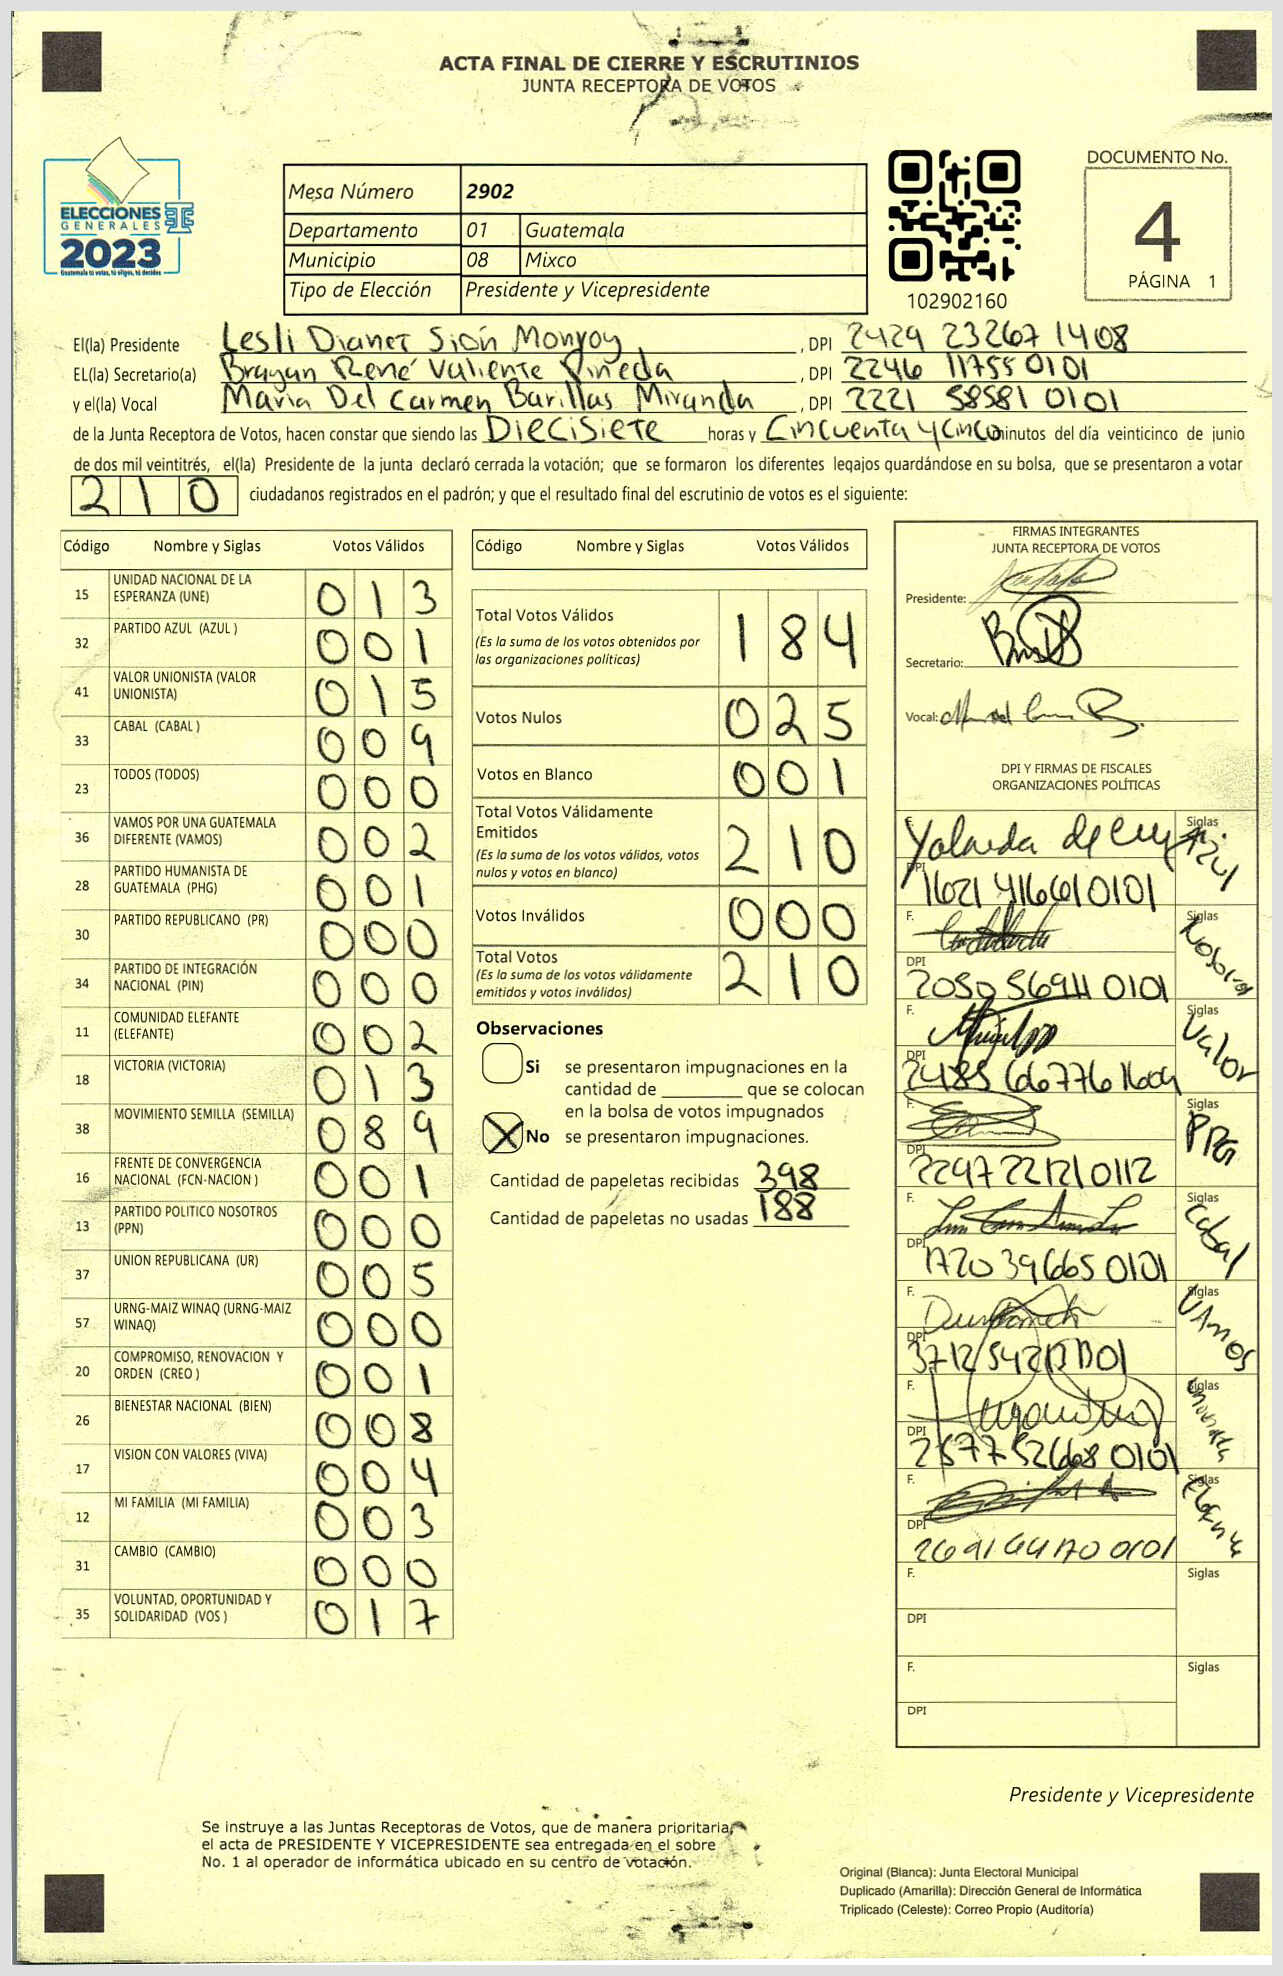 ACTA FINAL DE CIERRE Y ESCRUTINIOS
JUNTA RECEPTORA DE VOTOS
ELECCIONES
GENERALES
2023
Guatemala tú votas, tú eliges, tú decides
Mesa Número 2902
Departamento 01 Guatemala
Municipio 08 Mixco
Tipo de Elección Presidente y Vicepresidente
102902160
DOCUMENTO No.
4
PÁGINA 1
El(la) Presidente Lesli Dianet Sión Monroy, DPI 2429 23267 1408
EL(la) Secretario(a) Brayan René Valiente Pineda, DPI 2246 11755 0101
y el(la) Vocal Maria Del Carmen Barillas Miranda, DPI 2221 58581 0101
de la Junta Receptora de Votos, hacen constar que siendo las DIECISIETE horas y Cincuenta y cinco minutos del día veinticinco de junio
de dos mil veintitrés, el(la) Presidente de la junta declaró cerrada la votación; que se formaron los diferentes legajos guardándose en su bolsa, que se presentaron a votar
210 ciudadanos registrados en el padrón; y que el resultado final del escrutinio de votos es el siguiente:
Código Nombre y Siglas Votos Válidos
15 UNIDAD NACIONAL DE LA ESPERANZA (UNE) 013
32 PARTIDO AZUL (AZUL ) 001
41 VALOR UNIONISTA (VALOR UNIONISTA) 015
33 CABAL (CABAL ) 009
23 TODOS (TODOS) 000
36 VAMOS POR UNA GUATEMALA DIFERENTE (VAMOS) 002
28 PARTIDO HUMANISTA DE GUATEMALA (PHG) 001
30 PARTIDO REPUBLICANO (PR) 000
34 PARTIDO DE INTEGRACIÓN NACIONAL (PIN) 000
11 COMUNIDAD ELEFANTE (ELEFANTE) 002
18 VICTORIA (VICTORIA) 013
38 MOVIMIENTO SEMILLA (SEMILLA) 089
16 FRENTE DE CONVERGENCIA NACIONAL (FCN-NACION ) 001
13 PARTIDO POLITICO NOSOTROS (PPN) 000
37 UNION REPUBLICANA (UR) 005
57 URNG-MAIZ WINAQ (URNG-MAIZ WINAQ) 000
20 COMPROMISO, RENOVACION Y ORDEN (CREO ) 001
26 BIENESTAR NACIONAL (BIEN) 008
17 VISION CON VALORES (VIVA) 004
12 MI FAMILIA (MI FAMILIA) 003
31 CAMBIO (CAMBIO) 000
35 VOLUNTAD, OPORTUNIDAD Y SOLIDARIDAD (VOS ) 017
Código Nombre y Siglas Votos Válidos
Total Votos Válidos 184
(Es la suma de los votos obtenidos por
las organizaciones políticas)
Votos Nulos 025
Votos en Blanco 001
Total Votos Válidamente
Emitidos 210
(Es la suma de los votos válidos, votos
nulos y votos en blanco)
Votos Inválidos 000
Total Votos 210
(Es la suma de los votos válidamente
emitidos y votos inválidos)
Observaciones
Si se presentaron impugnaciones en la
cantidad de ________ que se colocan
en la bolsa de votos impugnados
X No se presentaron impugnaciones.
Cantidad de papeletas recibidas 398
Cantidad de papeletas no usadas 188
FIRMAS INTEGRANTES
JUNTA RECEPTORA DE VOTOS
Presidente:
Secretario:
Vocal:
DPI Y FIRMAS DE FISCALES
ORGANIZACIONES POLÍTICAS
F. Yolanda de Siglas Azul
DPI 1621 41661 0101
F. Siglas
DPI 2050 56911 0101
F. Siglas Valor
DPI 2485 66776 1604
F. Siglas
DPI 2297 22121 0112
F. Siglas Cabal
DPI 1720 39665 0101
F. Siglas VAMOS
DPI
F. Siglas
DPI 2577 52668 0101
F. Siglas
DPI 2691 44170 0101
F. Siglas
DPI
F. Siglas
DPI
Presidente y Vicepresidente
Se instruye a las Juntas Receptoras de Votos, que de manera prioritaria,
el acta de PRESIDENTE Y VICEPRESIDENTE sea entregada en el sobre
No. 1 al operador de informática ubicado en su centro de votación.
Original (Blanca): Junta Electoral Municipal
Duplicado (Amarilla): Dirección General de Informática
Triplicado (Celeste): Correo Propio (Auditoría)